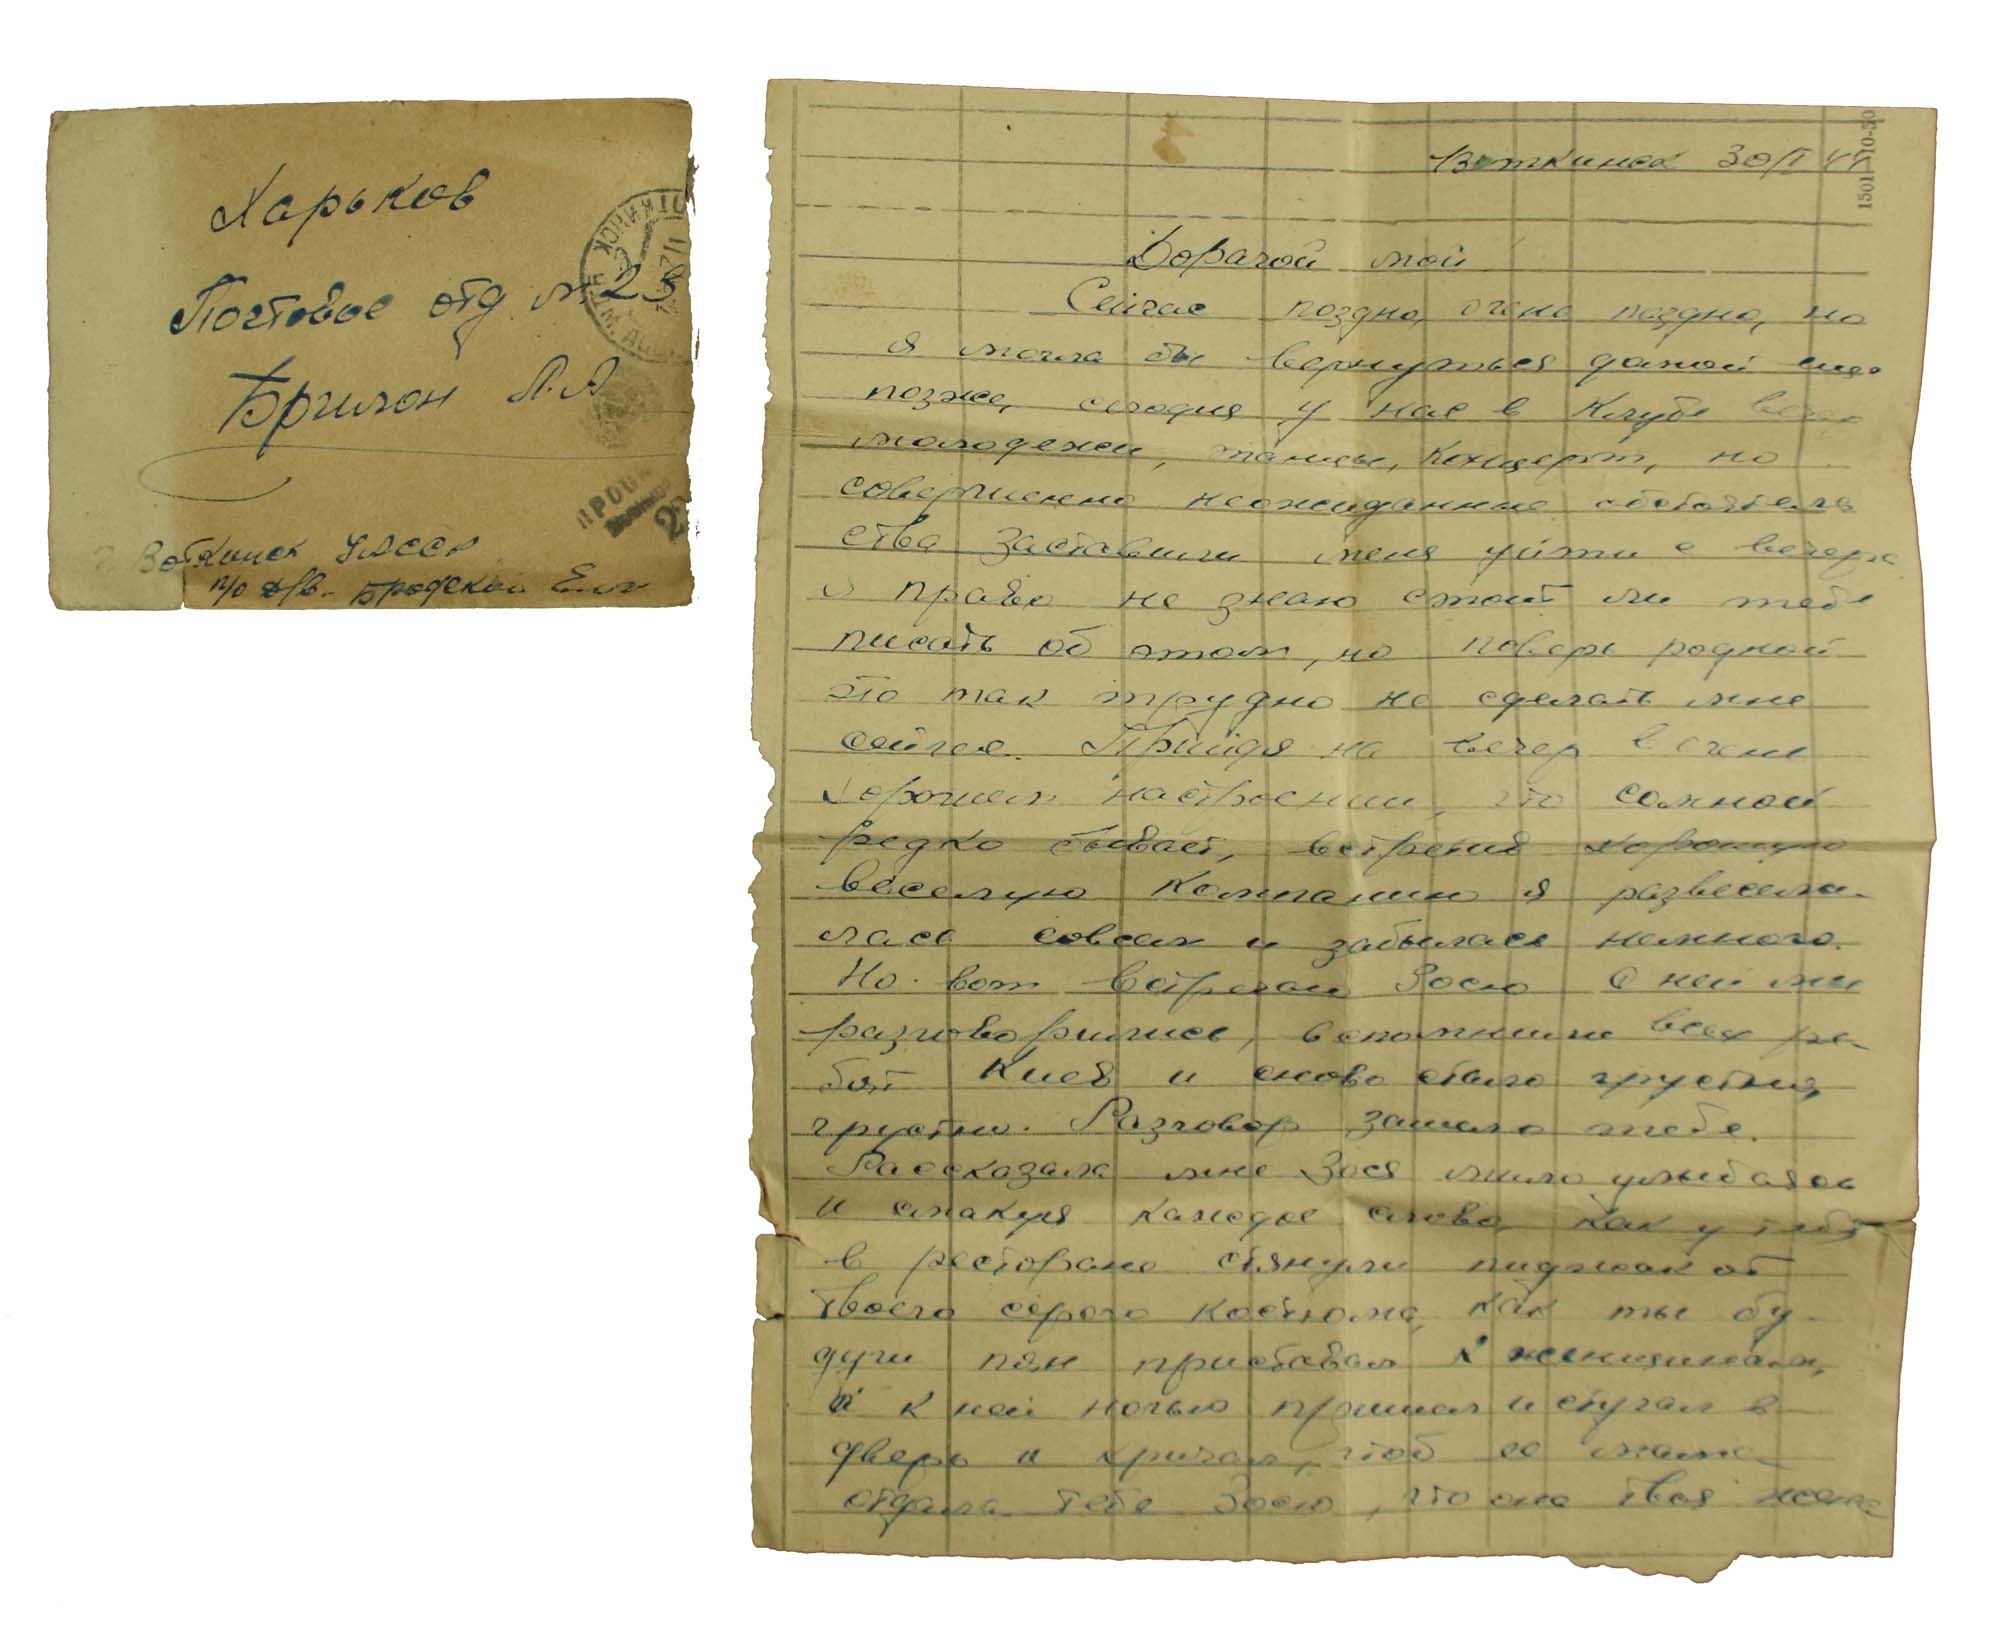 Харьков
Почтовое отд № 23
Бригилон Л.Л
г. Воткинск УАССР
п/о д/в. Бродской
ВОТКИНСК
1501 10-30
Воткинск 30/I 44
Дорагой мой!
Сейчас поздно, очень поздно, но
я могла бы вернуться домой еще
позже, сегодня у нас в клубе вечер
молодежи, танцы, концерт, но
совершенно неожиданные обстоятель
ства заставили меня уйти с вечера
я право не знаю стоит ли тебе
писать об этом, но поверь родной
это так трудно не сделать мне
сейчас. Прийдя на вечер в очень
хорошем настроении, что сомной
редко бывает, встретив хорошую
веселую компанию я развесели-
лась совсем и забылась немного.
Но вот встречаю Зосю С ней мы
разговорились, вспомнили всех ре-
бят Киев и снова стало грустно,
грустно. Разговор зашел о тебе.
Рассказала мне Зося мило улыбаясь
и смакуя каждое слово, как у тебя
в ресторане стянули пиджак от
твоего серого костюма, как ты бу-
дучи пян приставал к женщинам,
и к ней ночью пришел и стучал в
дверь и кричал, чтоб ее мама
отдала тебе Зосю, что она твоя жена